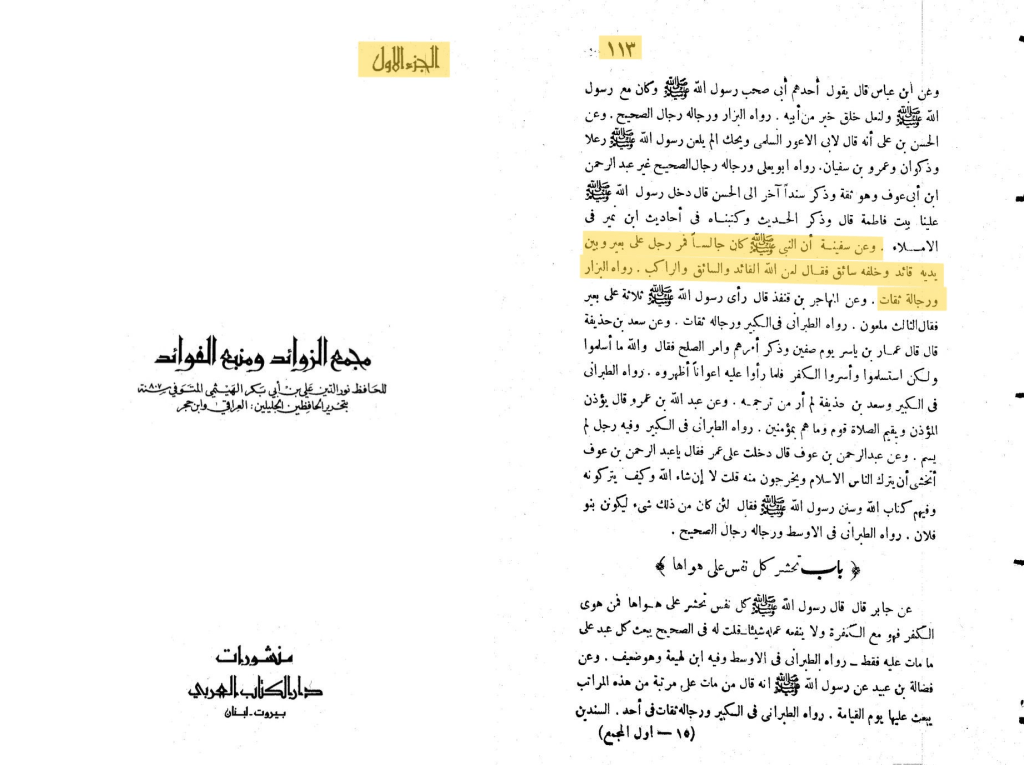 الجزء الاول
مجمع الزوائد ومنبع الفوائد
للحافظ نور الدين علي بن أبي بكر الهيثمي المتوفى سنة ٨٠٧
بتحرير الحافظين الجليلين: العراقي وابن حجر
منشورات
دار الكتاب العربي
بيروت - لبنان
١١٣
وعن ابن عباس قال يقول أحدهم أبى صحب رسول الله ﷺ وكان مع رسول
الله ﷺ ولنعل خلق خير من أبيه . رواه البزار ورجاله رجال الصحيح . وعن
الحسن بن على أنه قال لابى الاعور السلمى ويحك الم يلعن رسول الله ﷺ رعلا
وذكوان وعمرو بن سفيان. رواه ابو يعلى ورجاله رجال الصحيح غير عبد الرحمن
ابن أبى عوف وهو ثقة وذكر سنداً آخر الى الحسن قال دخل رسول الله ﷺ
علينا بيت فاطمة قال وذكر الحديث وكتبناه فى أحاديث ابن نمير فى
الاملاء . وعن سفينة أن النبى ﷺ كان جالساً فمر رجل على بعير وبين
يديه قائد وخلفه سائق فقال لعن الله القائد والسائق والراكب . رواه البزار
ورجالة ثقات . وعن المهاجر بن قنفذ قال رأى رسول الله ﷺ ثلاثة على بعير
فقال الثالث ملعون . رواه الطبرانى فى الكبير ورجاله ثقات . وعن سعد بن حذيفة
قال قال عمار بن ياسر يوم صفين وذكر أمرهم وامر الصلح فقال والله ما أسلموا
ولكن استسلموا وأسروا الكفر فلما رأوا عليه اعواناً أظهروه . رواه الطبرانى
فى الكبير وسعد بن حذيفة لم أر من ترجمه . وعن عبد الله بن عمرو قال يؤذن
المؤذن ويقيم الصلاة قوم وما هم بمؤمنين . رواه الطبرانى فى الكبير وفيه رجل لم
يسم . وعن عبدالرحمن بن عوف قال دخلت على عمر فقال ياعبد الرحمن بن عوف
أتخشى أن يترك الناس الاسلام ويخرجون منه قلت لا إن شاء الله وكيف يتركونه
وفيهم كتاب الله وسنن رسول الله ﷺ فقال لئن كان من ذلك شىء ليكونن بنو
فلان . رواه الطبرانى فى الاوسط ورجاله رجال الصحيح .
﴿ باب تحشر كل نفس على هواها ﴾
عن جابر قال قال رسول الله ﷺ كل نفس تحشر على هواها فمن هوى
الكفر فهو مع الكفرة ولا ينفعه عمله شيئا ـ قلت له فى الصحيح يبعث كل عبد على
ما مات عليه فقط ـ رواه الطبرانى فى الاوسط وفيه ابن لهيعة وهو ضعيف . وعن
فضالة بن عبيد عن رسول الله ﷺ انه قال من مات على مرتبة من هذه المراتب
يبعث عليها يوم القيامة . رواه الطبرانى فى الكبير ورجاله ثقات فى أحد . السندين
(١٥ – اول المجمع)